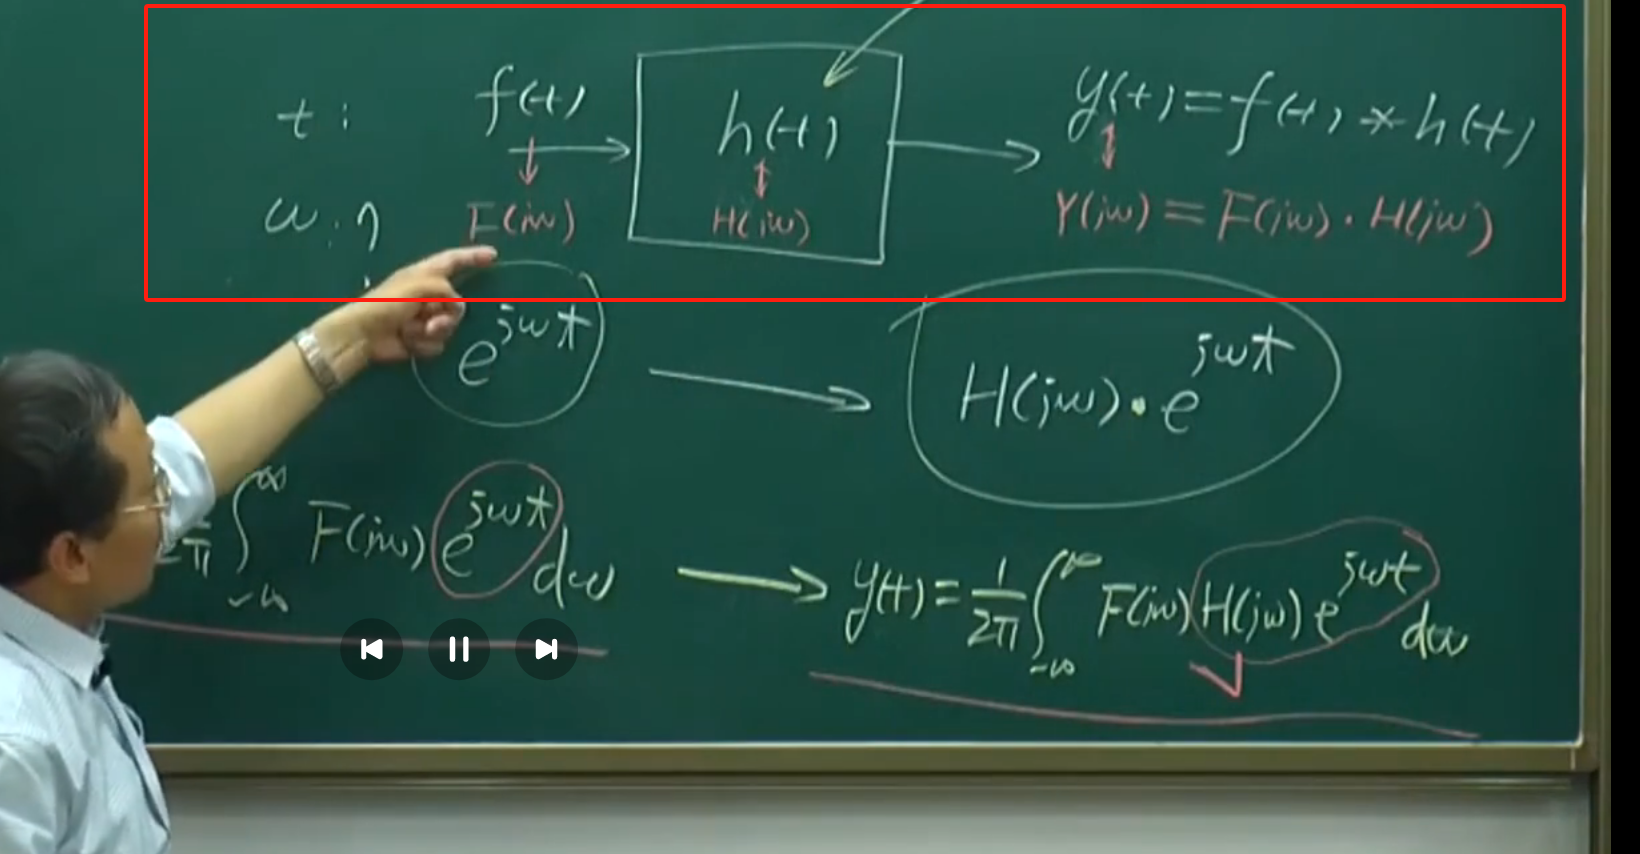 t: f(t) h(t) y(t)=f(t)*h(t)
ω: F(jω) H(jω) Y(jω)=F(jω)·H(jω)
e^{jωt} → H(jω)·e^{jωt}
2π ∫_{-∞}^{∞} F(jω) e^{jωt} dω → y(t)=\frac{1}{2π}∫_{-∞}^{∞} F(jω) H(jω) e^{jωt} dω